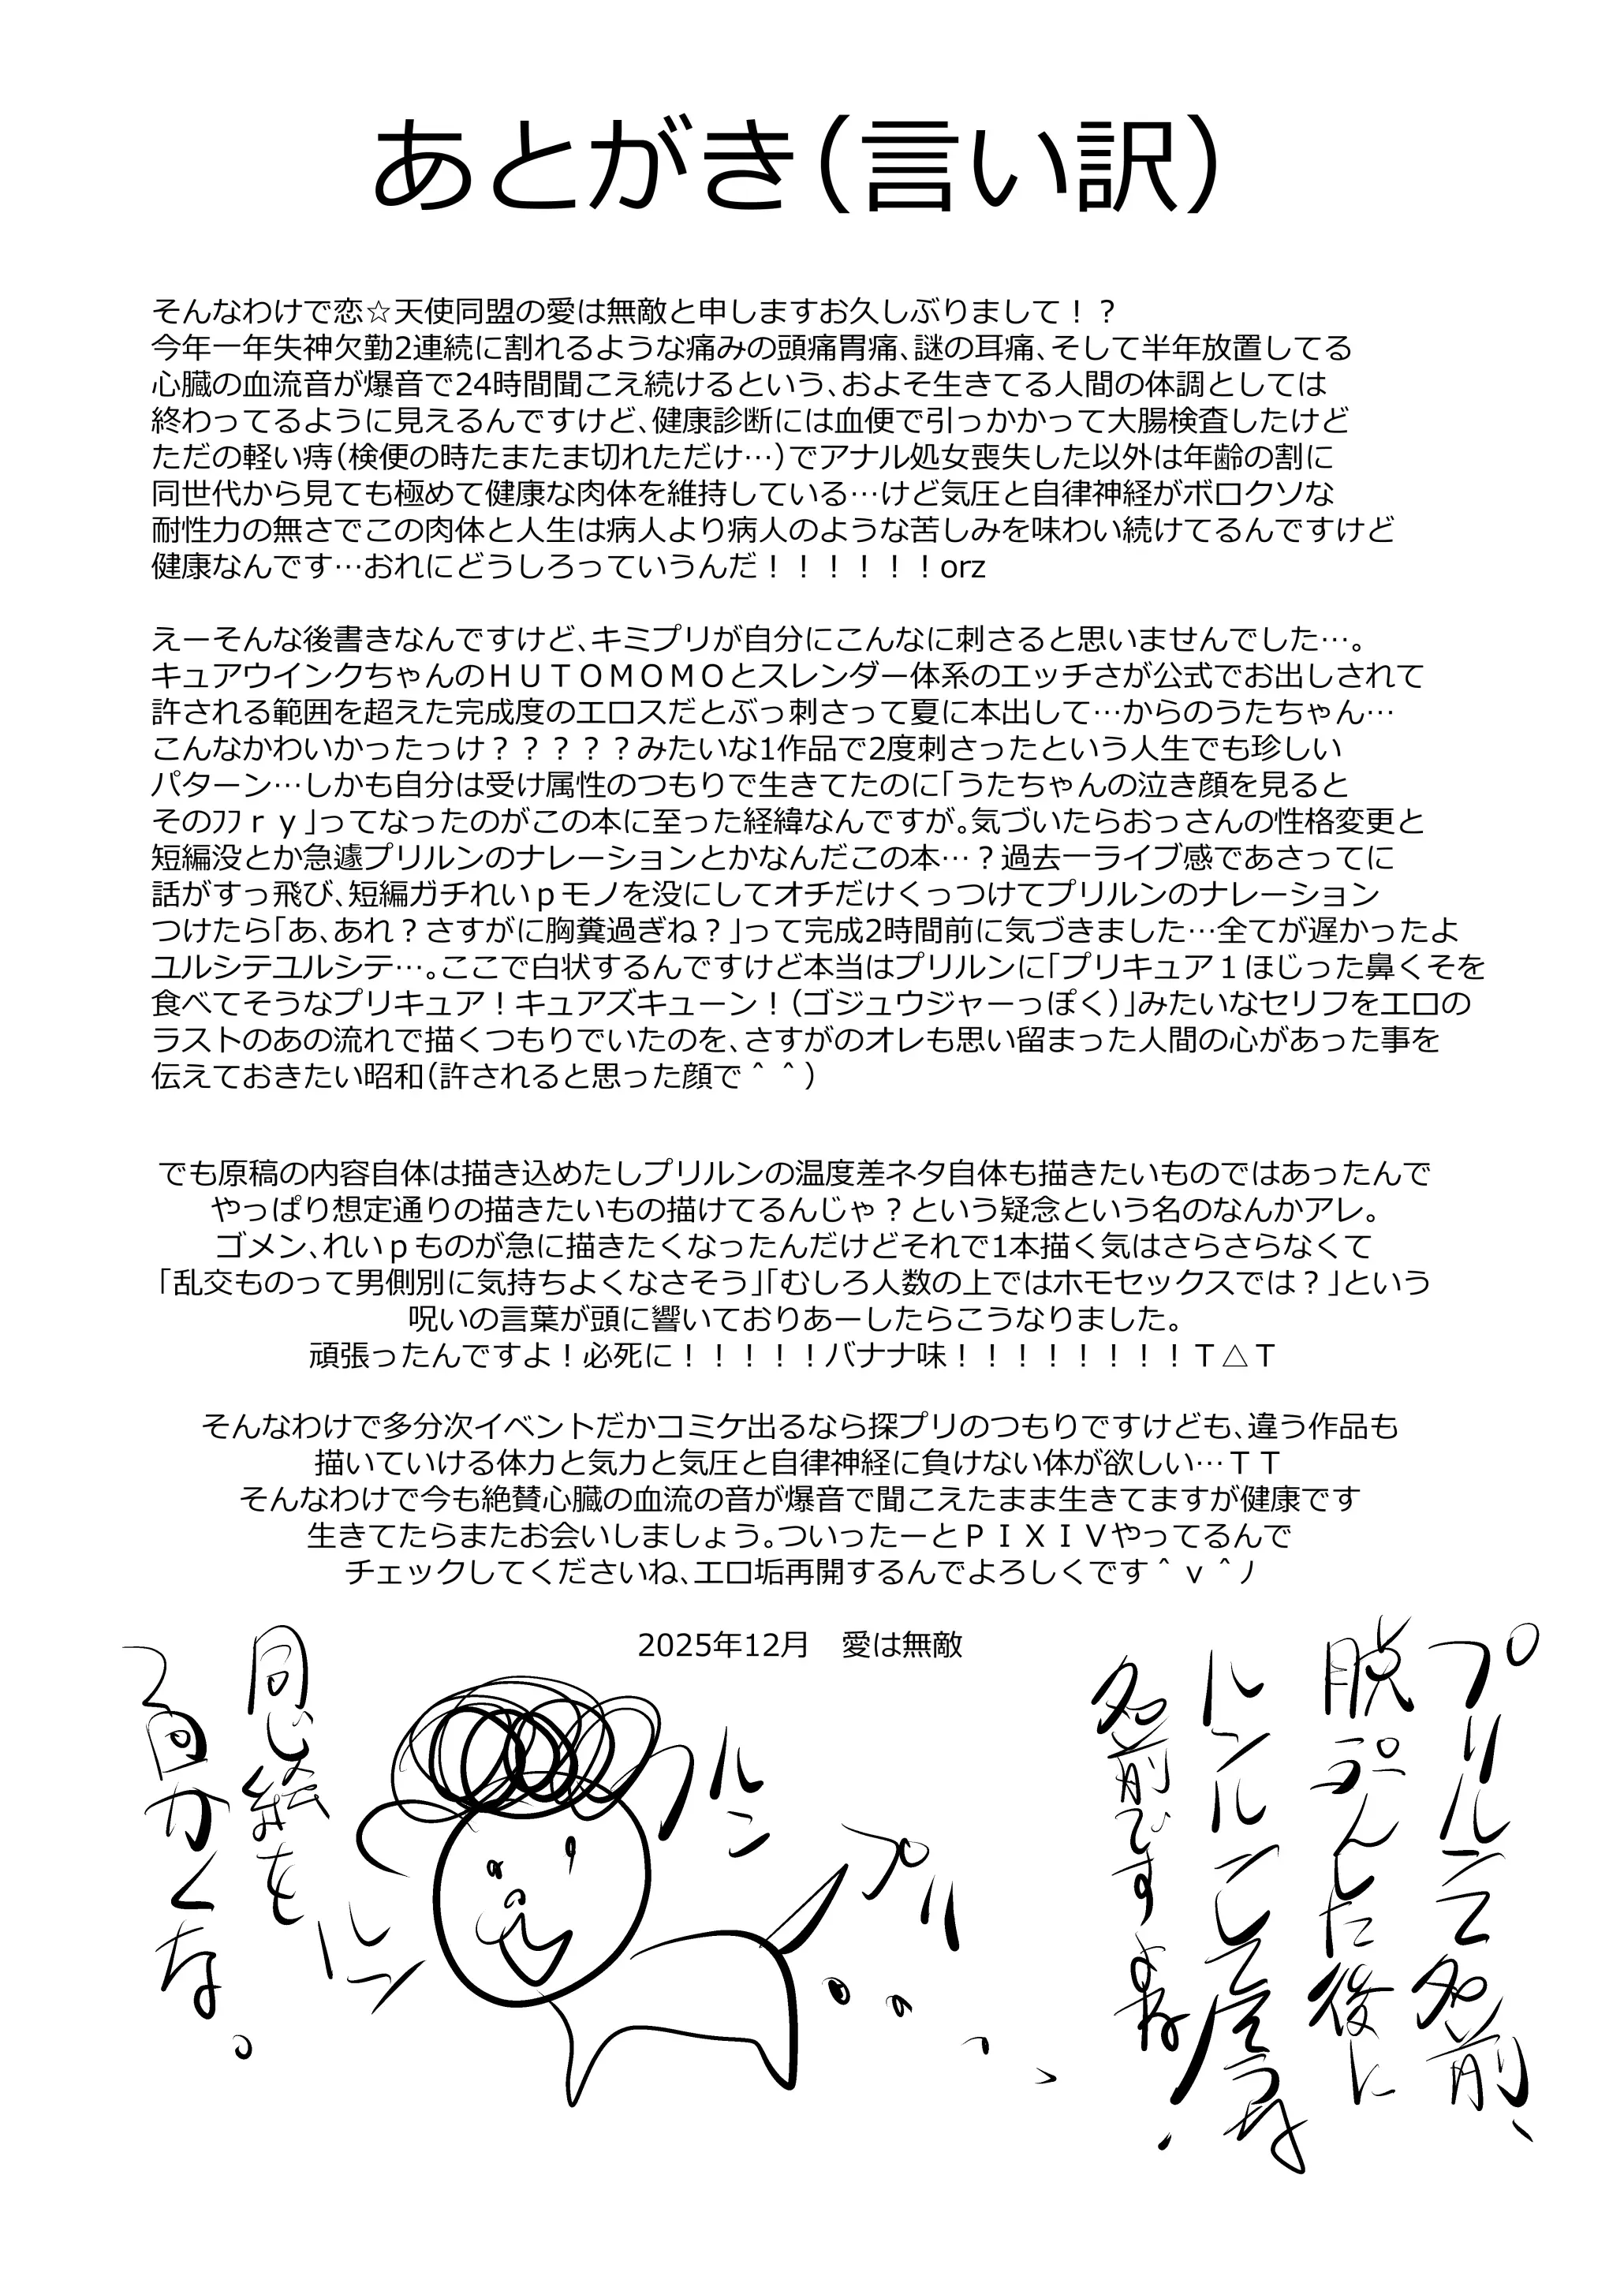 あとがき（言い訳）
そんなわけで恋☆天使同盟の愛は無敵と申しますお久しぶりまして！？
今年一年失神欠勤2連続に割れるような痛みの頭痛胃痛、謎の耳痛、そして半年放置してる
心臓の血流音が爆音で24時間聞こえ続けるという、およそ生きてる人間の体調としては
終わってるように見えるんですけど、健康診断には血便で引っかかって大腸検査したけど
ただの軽い痔（検便の時たまたま切れただけ…）でアナル処女喪失した以外は年齢の割に
同世代から見ても極めて健康な肉体を維持している…けど気圧と自律神経がボロクソな
耐性力の無さでこの肉体と人生は病人より病人のような苦しみを味わい続けてるんですけど
健康なんです…おれにどうしろっていうんだ！！！！！！orz
えーそんな後書きなんですけど、キミプリが自分にこんなに刺さると思いませんでした…。
キュアウインクちゃんのＨＵＴＯＭＯＭＯとスレンダー体系のエッチさが公式でお出しされて
許される範囲を超えた完成度のエロスだとぶっ刺さって夏に本出して…からのうたちゃん…
こんなかわいかったっけ？？？？？みたいな1作品で2度刺さったという人生でも珍しい
パターン…しかも自分は受け属性のつもりで生きてたのに「うたちゃんの泣き顔を見ると
そのﾌﾌｒｙ」ってなったのがこの本に至った経緯なんですが。気づいたらおっさんの性格変更と
短編没とか急遽プリルンのナレーションとかなんだこの本…？過去一ライブ感であさってに
話がすっ飛び、短編ガチれいｐモノを没にしてオチだけくっつけてプリルンのナレーション
つけたら「あ、あれ？さすがに胸糞過ぎね？」って完成2時間前に気づきました…全てが遅かったよ
ユルシテユルシテ…。ここで白状するんですけど本当はプリルンに「プリキュア１ほじった鼻くそを
食べてそうなプリキュア！キュアズキューン！（ゴジュウジャーっぽく）」みたいなセリフをエロの
ラストのあの流れで描くつもりでいたのを、さすがのオレも思い留まった人間の心があった事を
伝えておきたい昭和（許されると思った顔で＾＾）
でも原稿の内容自体は描き込めたしプリルンの温度差ネタ自体も描きたいものではあったんで
やっぱり想定通りの描きたいもの描けてるんじゃ？という疑念という名のなんかアレ。
ゴメン、れいｐものが急に描きたくなったんだけどそれで1本描く気はさらさらなくて
「乱交ものって男側別に気持ちよくなさそう」「むしろ人数の上ではホモセックスでは？」という
呪いの言葉が頭に響いておりあーしたらこうなりました。
頑張ったんですよ！必死に！！！！！バナナ味！！！！！！！！Ｔ△Ｔ
そんなわけで多分次イベントだかコミケ出るなら探プリのつもりですけども、違う作品も
描いていける体力と気力と気圧と自律神経に負けない体が欲しい…ＴＴ
そんなわけで今も絶賛心臓の血流の音が爆音で聞こえたまま生きてますが健康です
生きてたらまたお会いしましょう。ついったーとＰＩＸＩＶやってるんで
チェックしてくださいね、エロ垢再開するんでよろしくです＾ｖ＾ﾉ
2025年12月　愛は無敵
プリルンて名前、
脱ぷんした後に
ルンルンして言うな
名前ですよね！
プリ
ルン
ルン
同じ絵を
2回かくな。